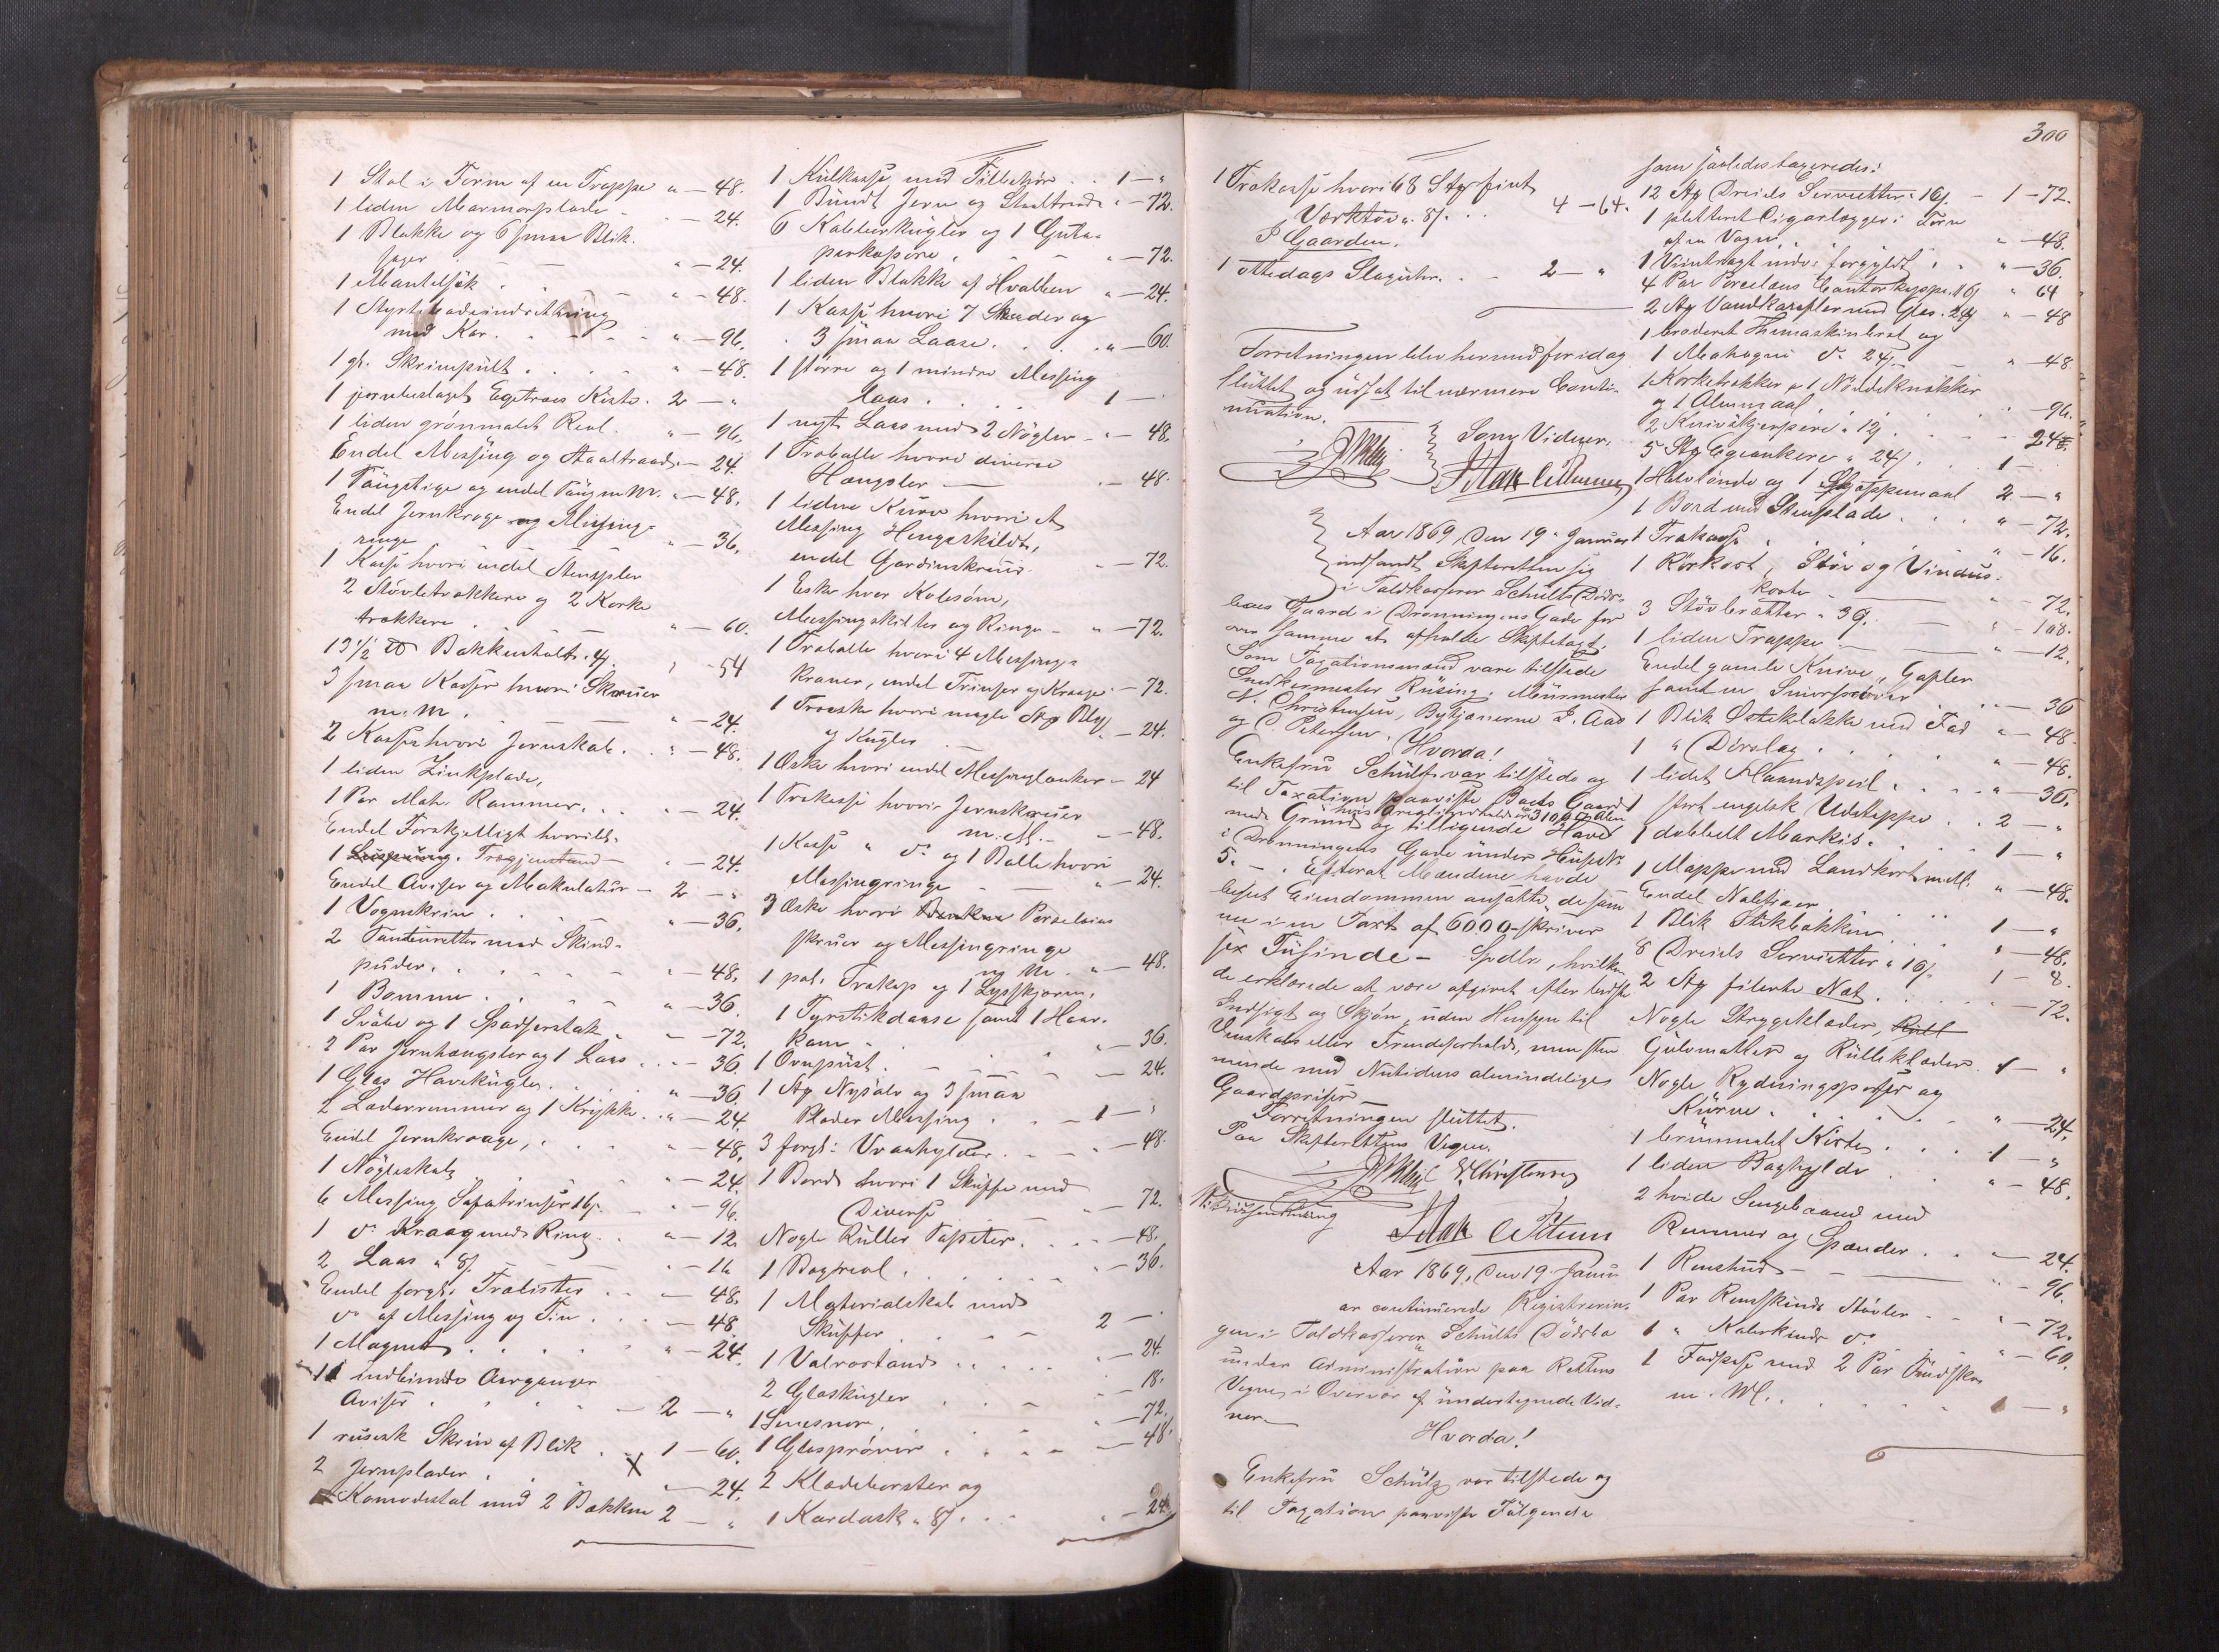 1 Stol i Form af en Trappe " — 48.
1 liden Marmorplade " — 24.
1 Blakke og 6 smaa Blik-
" — 24.
1 Mantelsæk " — 48.
1 Styrtebadeindretning
med Kar. " — 96.
1 gl. Skrivepult " — 48.
1 jernbeslaget Egetræes Kiste. 2 — "
1 liden grønmalet Reol. " — 96.
Endel Messing og Staaltraad. " — 24.
1 Taugstige og endel Taug m. M. " — 48.
Endel Jernkroge og Messing-
ringe " — 36.
1 Kasse hvori endel
2 Støvletrækkere og 2 Korke
trækkere " — 60.
13 1/2 ℔ Bakkenholt. 4/ " — 54
3 smaa Kasser hvori Skruer
m. M. " — 24.
2 Kasser hvori Jernskab. " — 48.
1 liden Zinkplade,
1 Par Mah. Rammer. " — 24.
Endel Forskjelligt hvoribl.
1 Trægjenstand " — 24.
Endel Aviser og Makulatur — 2 — "
1 Vognskrin " — 36.
2 med Skind-
puder. " — 48.
1 Bomme " — 36.
1 Svabe og 1 Spadserstok " — 72.
2 Par Jernhængsler og 1 Laas " — 36.
1 Glas Havekugle " — 36.
2 Læderremmer og 1 Krykke " — 24.
Endel Jernkroge, " — 48.
1 Nøgleskab " — 24.
6 Messing Sofatrinser 16/ " — 96.
1 do Kraag med Ring " — 12.
2 Laas a 8/ " — 16
Endel forgl. Trælister " — 48.
do af Messing og Tin " — 48.
1 Magnet " — 24.
11 indbundne Aargange
Aviser 2 — "
1 russisk Skrin af Blik 1 — 60.
2 Jernplader " — 24.
1 Komodestol med 2 Bækken 2 — "
1 Kulkasse med Tilbehør 1 — "
1 Bundt Jern og Staaltraad " — 72.
6 Kaklerkugler og 1 Guta-
" — 72.
1 liden Blakke af Hvalben " — 24.
1 Kasse hvori 7 Skeder og
3 smaa Laase. " — 60.
1 større og 1 mindre Messing
laas 1 — "
1 nyt Laas med 2 Nøgler " — 48.
1 Træballe hvori diverse
Hængsler — " — 48.
1 liden Kurv hvori et
Messing Hengeskildt,
endel Gardinskruer " — 72.
1 Eske hvor Kobesøm,
Messingskilter og Ringe " — 72.
1 Træballe hvori 4 Messing-
kraner, endel Trinser og Kroge " — 72.
1 Træeske hvori nogle Stk Bly
og Kugler " — 24.
1 Æske hvori endel Messinglænker — 24
1 Trækasse hvori Jernskruer
m. M. — " — 48.
1 Kasse " do og 1 Balle hvori
Messingringe " — 24.
3 Æske hvori Porcelains
skruer og Messingringe
m. M. " — 48.
1 pol. Trækop og 1 Lysskjærm,
1 Fyrstikdaase samt 1 Haar-
kam " — 36.
1 Ovnpust " — 24.
1 Stk Nysølv og 3 smaa
Plader Messing 1 — "
3 forgl: Vraahylder " — 48.
1 Bord hvori 1 Skuffe med
Diverse " — 72.
Nogle Ruller Tapeter " — 48.
1 Bogreol " — 36.
1 Materialskab med
Skuffer 2 — "
1 Valrostand " — 24.
2 Glaskugler " — 18.
1 Snesnore " — 72.
1 Glasprøver " — 48.
2 Klædebørster og
1 Kardask a 8/ " — 24.
300
1 Trækasse hvori 68 Stk fint
Værktøi a 8/ 4 — 64.
I Gaarden.
1 ottedags Slaguhr 2 — "
Forretningen blev hermed for idag
sluttet og udsat til nærmere Conti-
nuation.
Som Vidner,
Aar 1869, Den 19. Januar
indfandt Skifteretten sig
i Toldkasserer Schultz's Døds-
boes Gaard i Dronningens Gade for
over samme at afholde Skiftetaxt.
Som Taxationsmænd vare tilstede
Snedkermester Rüsing, Muurmester
N. Christensen, Bytjenerne I. Aas
og C. Petersen. Hvorda!
Enkefru Schultz var tilstede og
til Taxation paaviste Boets Gaard
med Grund hvis Areal 310 □ Alen
og tilliggende Have
i Dronningens Gade under Huset No
5. — Efterat Mændene havde
beseet Eiendommen ansatte de sam
me i en Taxt af 6000 — skriver
sex Tusinde — Spdlr, hvilken
de erklærede at være afgivet efter bedste
Indsigt og Skjøn, uden Hensyn til
Venskabs eller Frendeforhold, men stem
mende med Nutidens almindelige
Gaardpriser.
Forretningen sluttet.
Paa Skifterettens Vegne.
Aar 1869, Den 19 Janu-
ar continuerede Registrerin-
gen i Toldkasserer Schultz Dødsbo
under Administration paa Rettens
Vegne, i Overvær af undertegnede Vid-
ner.
Hvorda!
Enkefru Schultz var tilstede og
til Taxation paaviste Følgende
som saaledes taxeredes:
12 Stk Dreiels Servietter a 16/ — 1 — 72.
1 plettered Cigarlægger i Form
af en Vogn " — 48.
1 Viintragt indv: forgyldt " — 36.
4 Par Porcelæns Cantorkopper 16/ " 64
2 Stk Vandkarafler med Glas. 24/ " — 48
1 broderet Themaskinbret og
1 Mahogni do 24/ " — 48.
1 Korketrækker, 1 Nøddeknækker
og 1 Alenmaal " — 96.
2 Knivskjerpere a 12/ 24
5 Stk Egeankere a 24/ 1 —
1 Halvtønde og 1 Skjæppemaal 2 — "
1 Bord med Stenplade " — 72.
1 Trækasse " — 16.
1 Rørkost, Støv og Vindus-
koste " 72.
3 Støvbrætter a 36/ " — 108.
1 liden Trappe — " — 12.
Endel gamle Knive, Gafler
samt en " — 36
1 Blik Østeklokke med Fad " — 48.
1 " Dørslag " — 48.
1 lidet Haandspeil " — 36.
1 stort engelsk Udsteppe 2 — "
1 dobbelt Markis 1 — "
1 Mappe med Landkort m. M. " — 48.
Endel
1 Blik Stikbækken 1 — "
8 Dreiels Servietter a 16/ " — 48.
2 Stk filerte Næt 1 — 8.
Nogle Strygeklæder, " — 72.
Gulvmatter og Rulleklæder 1 — "
Nogle og
Kurve. " — 24.
1 brunmalet Kiste 1 — "
1 liden Boghylde " — 48.
2 hvide Sengebaand med
Remmer og Spænder " — 24.
1 Renshud " — 96.
1 Par Renskinds Støvler " — 72.
1 " Kalvskinds do " — 60.
1 Fodpose med 2 Par Uldsko
m. M. 1 — "